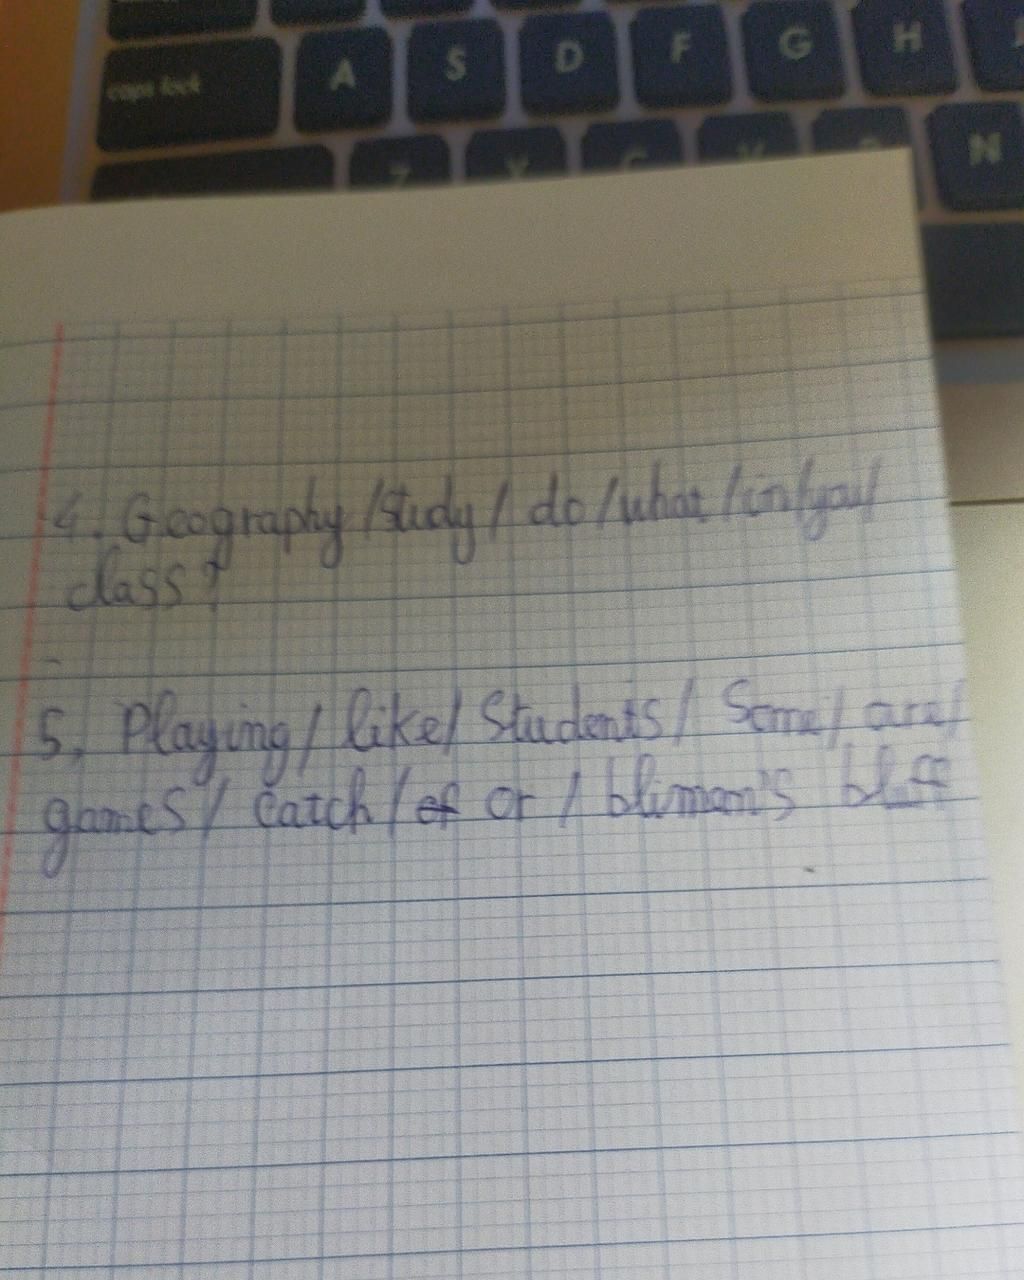 caps lock
A S D F G H
N
4. Geography / study / do / what / in / you /
class?
5, Playing / like / Students / Some / are /
games / Catch / of or / bliman's bluff